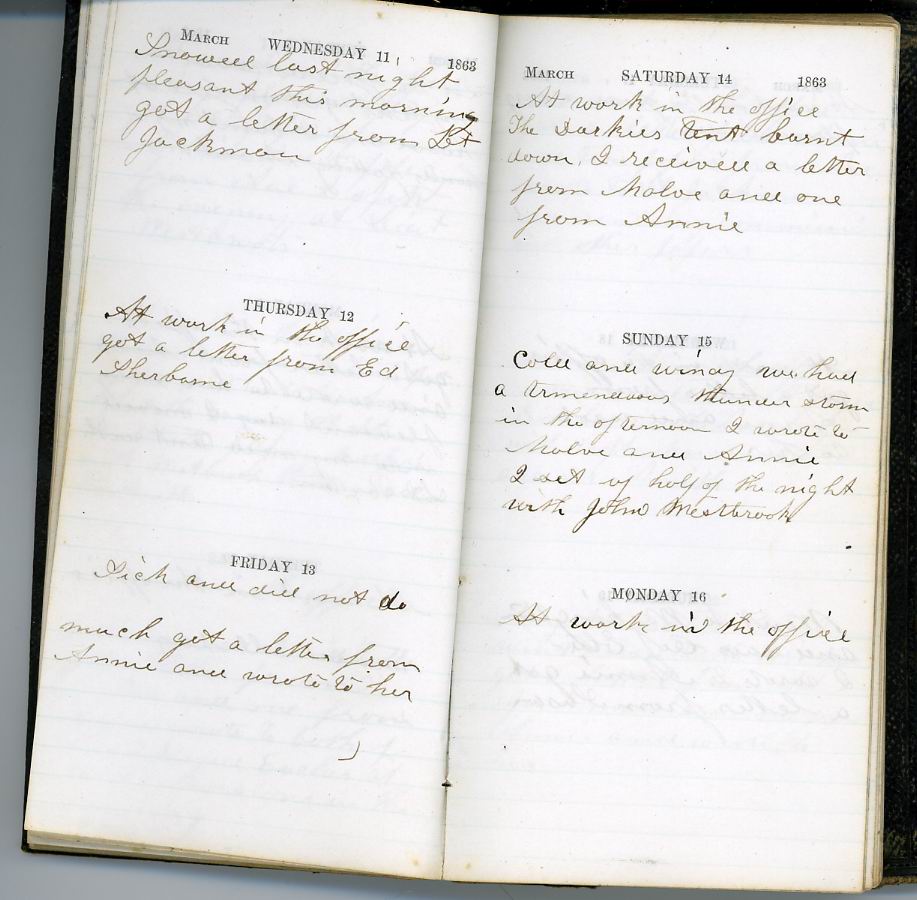 March WEDNESDAY 11 1863
Snowed last night
pleasant this morning
got a letter from Let
Jackman
THURSDAY 12
At work in the office
got a letter from Ed
Sherbame
FRIDAY 13
Sick and did not do
much got a letter from
Annie and wrote to her
March SATURDAY 14 1863
At work in the office
The Darkies tent burnt
down, I received a letter
from Malve and one
from Annie
SUNDAY 15
Cold and windy we had
a tremendous thunder storm
in the afternoon I wrote to
Malve and Annie
I set up half of the night
with John Westbrook
MONDAY 16
At work in the office